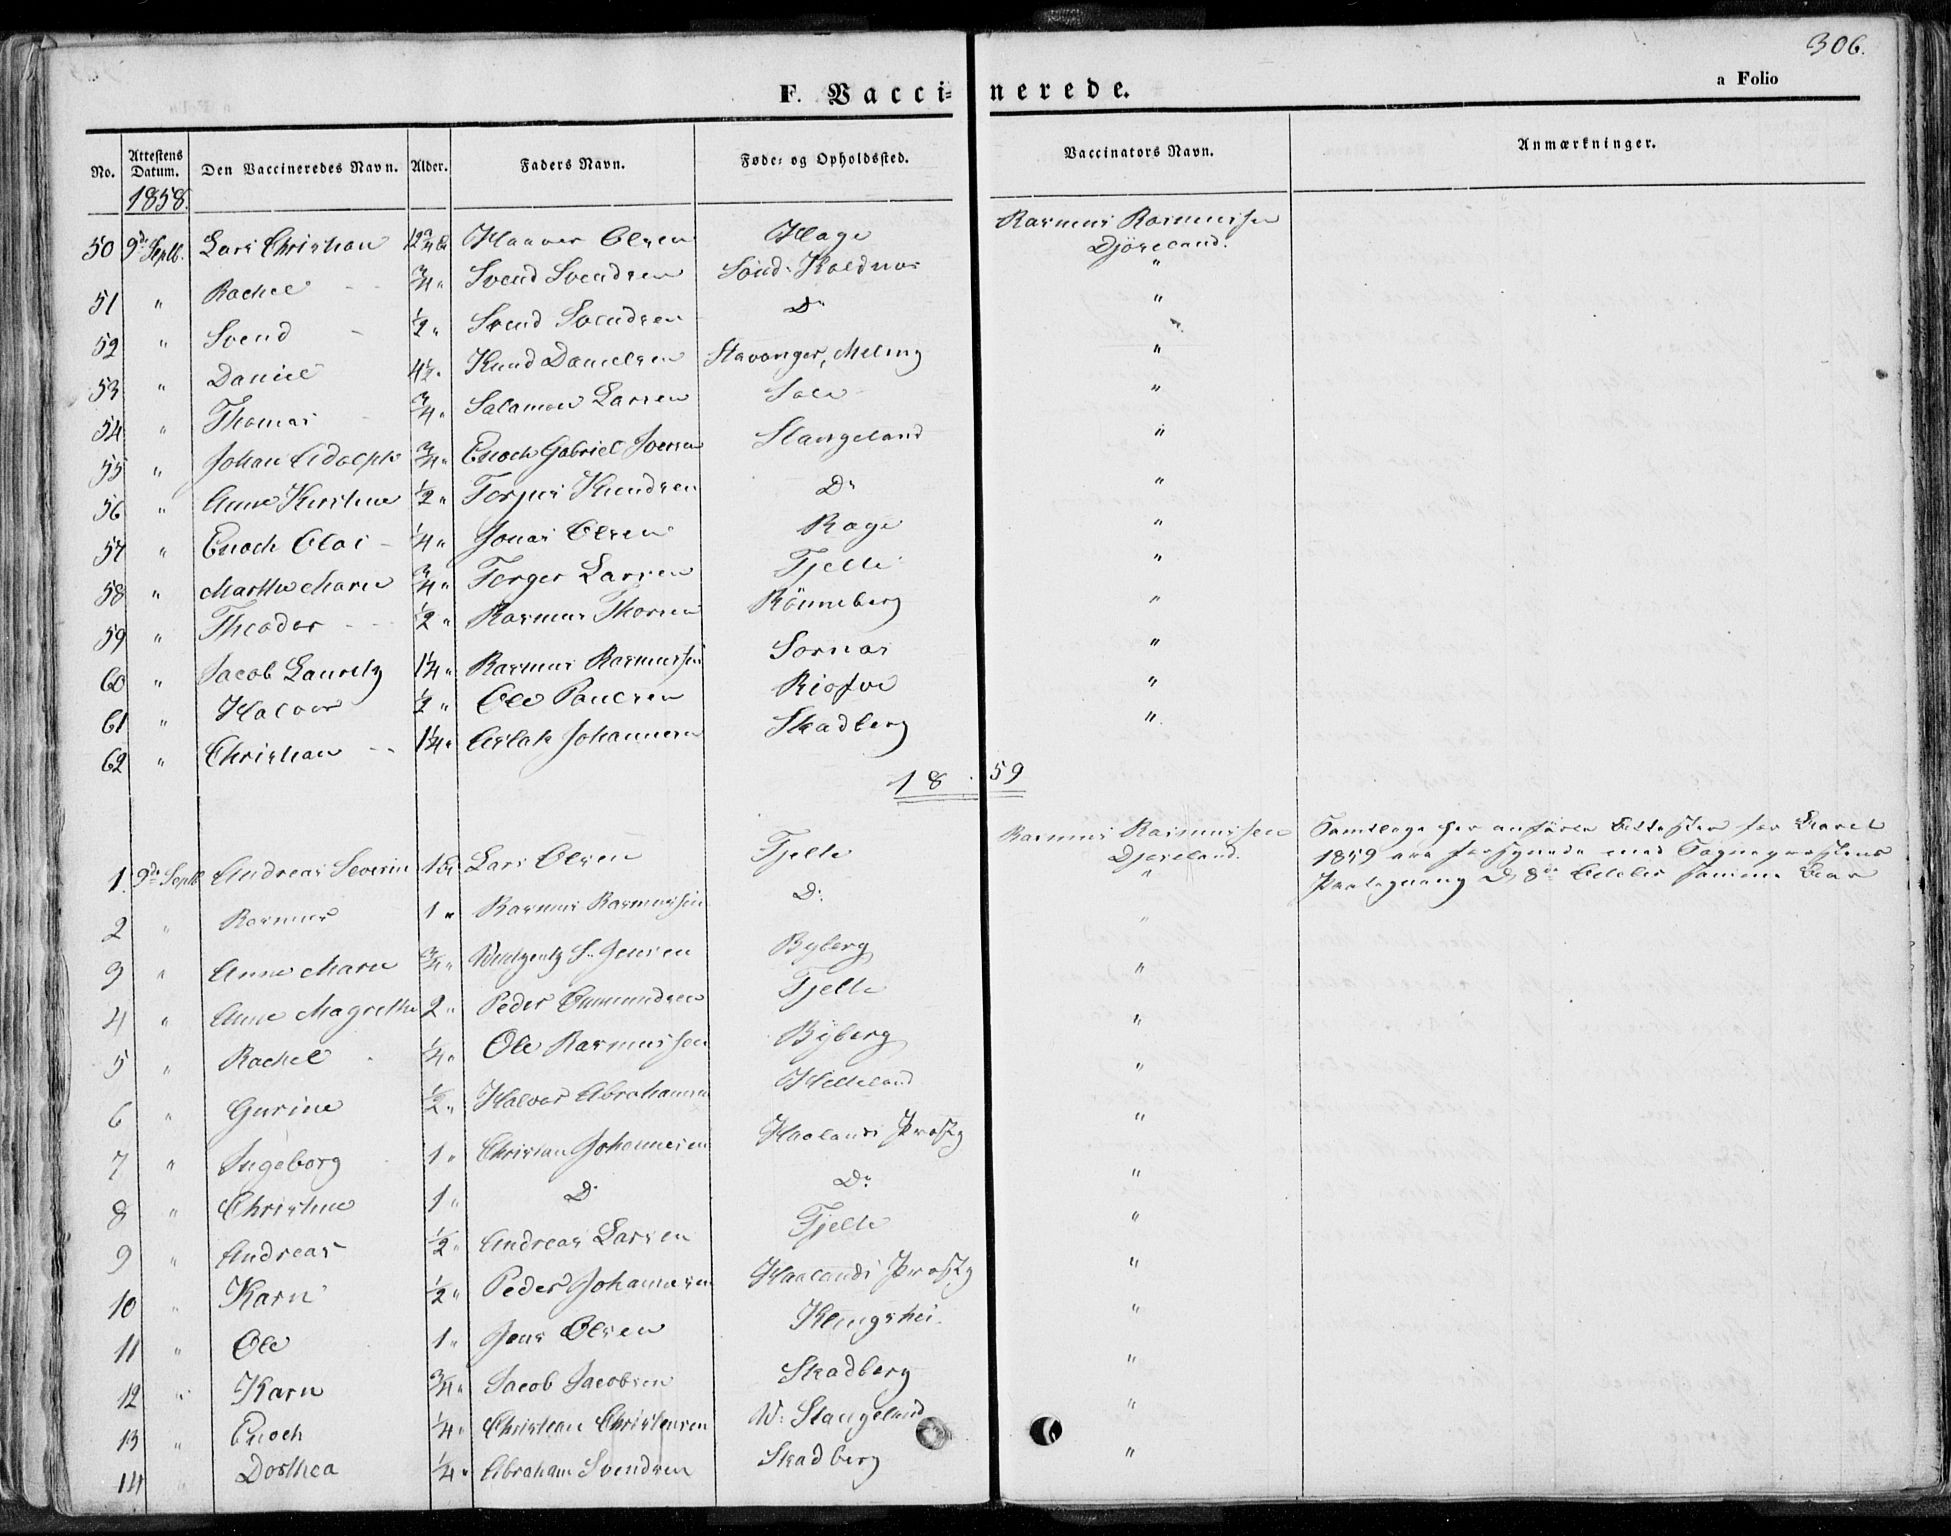 306.
a Folio
F. Vaccinerede.
No. Attestens Datum. Den Vaccineredes Navn. Alder. Faders Navn. Føde- og Opholdssted. Vaccinators Navn. Anmærkninger.
1858.
50 9de Septb. Lars Christian Olsen Hage Rasmus Rasmussen Djöseland.
51 " Rachel 3/4 " Svend Svendsen Sönd: "
52 " Svend 1/2 " Svend Svendsen Do "
53 " Daniel 4 1/2 " Knud Danielsen Stavanger, Meling "
54 " Thomas 3/4 " Salamon Larsen Sole "
55 " Johan Adolph 3/4 " Enoch Gabriel Iversen Stangeland "
56 " Anne Kirstine 1/2 " Torjus Knudsen Do "
57 " Enoch Olai 1/4 " Jonas Olsen Rage "
58 " Marthe Marie 3/4 " Torger Larsen Tjelle "
59 " Theodor 1/2 " Rasmus Thorsen Rönneberg "
60 " Jacob Lauretz 1 1/4 " Rasmus Rasmussen Sörnas "
61 " Halvor 1/2 " Ole Paulsen "
62 " Christian 1 1/4 " Aslak Johannesen Skadberg "
1859
1. 9de Septb Andreas Severin Lars Olsen Tjelle Rasmus Rasmussen Djöseland. Samtlige her anförte Attester for Aaret
1859 ere forsynede med Sognepræstens
Paategning D. 8de samme Aar
2 " Rasmus 1 " Rasmus Rasmussen Do "
3 " Anne Marie 3/4 " S. Jensen Byberg "
4 " Anne Magrethe 2 " Peder Tjelle "
5 " Rachel 1/4 " Ole Rasmussen Byberg "
6 " Gurine 1/2 " Halvor Abrahamsen Helleland "
7 " Ingeborg 1 " Christian Johannesen Haalands Prestg "
8 " Christine 1 " Do Do "
9 " Andreas 1/2 " Andreas Larsen Tjelle "
10 " Karn 1/2 " Peder Johannesen Haalands Prestg "
11 " Ole 1 " Jens Olsen Klingshei. "
12 " Karn 3/4 " Jacob Jacobsen Skadberg "
13 " Enoch 1/4 " Christian Christensen N: Stangeland "
14 " Dorthea 1/4 " Abraham Svendsen Skadberg "